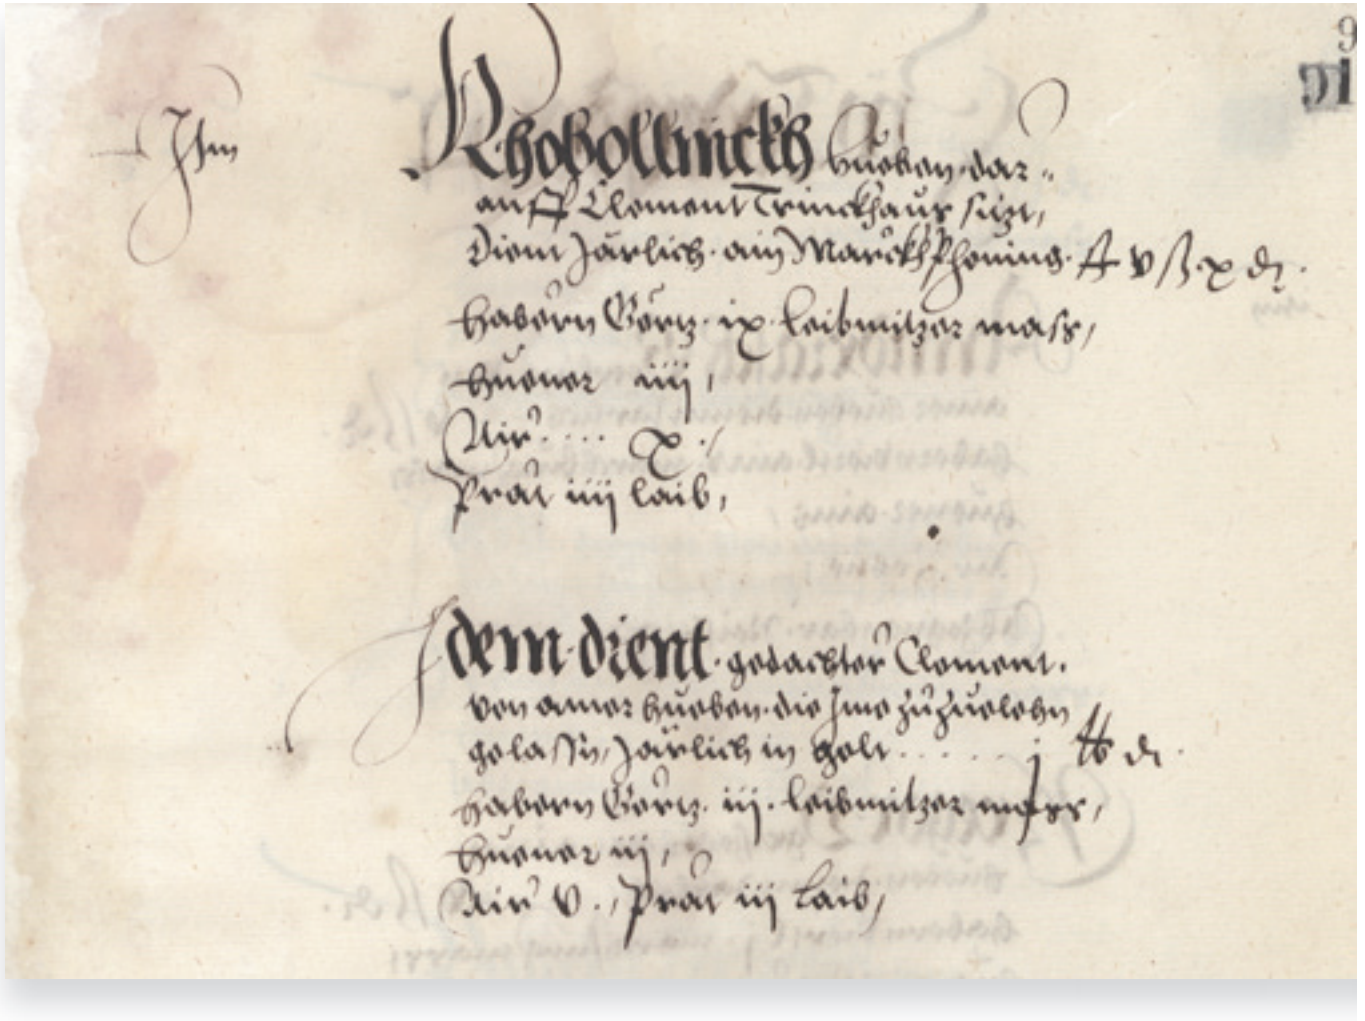 9
Itm
Khobollinckh hueben dar„
auff Clement Trinckhaus sitzt,
Dient Järlich ain Marckh Phening ß x dn.
habern Görtz ix leibnitzer mass,
huener iiij,
Air.... x
Prat iiij laib,
Idem dient gedachter Clement.
von ainer hueben die Ime zuzuelehn
gelassn, Järlich in gelt..... j lb dn.
habern Görtz. iij. leibnitzer mass,
huener iij,
Air v., Prat iij laib,